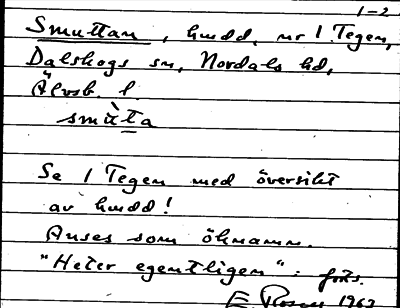 1-2
Smuttan, hmdd, nr 1 Tegen,
Dalskogs sn, Nordals hd,
Älvsb. l.
smùta
Se 1 Tegen med översikt
av hmdd!
Anses som öknamn.
"Heter egentligen": forts.
E Rosen 1963